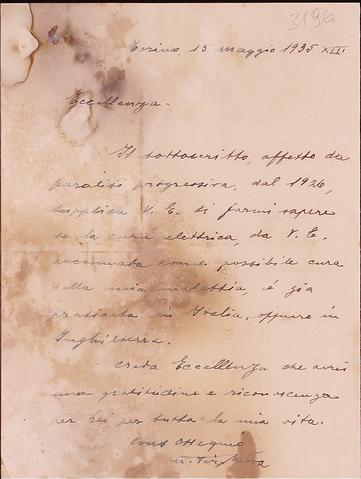 3196
Torino, 15 maggio 1935 XIII
Eccellenza.
Il sottoscritto, affetto da
paralisi progressiva, dal 1926,
supplica V. E. di farmi sapere
se la cura elettrica, da V. E.
come possibile cura
della mia malattia, é già
praticata in Italia, oppure in
Inghilterra.
Creda Eccellenza che avrei
una gratitudine e riconoscenza
per Lei per tutta la mia vita.
Con Ossequio